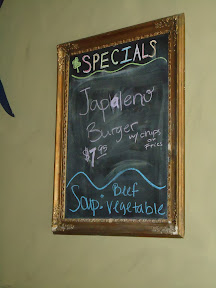 SPECIALS
Japaleno
Burger
w/ chips
or
fries
$7.95
Beef
Soup: Vegetable